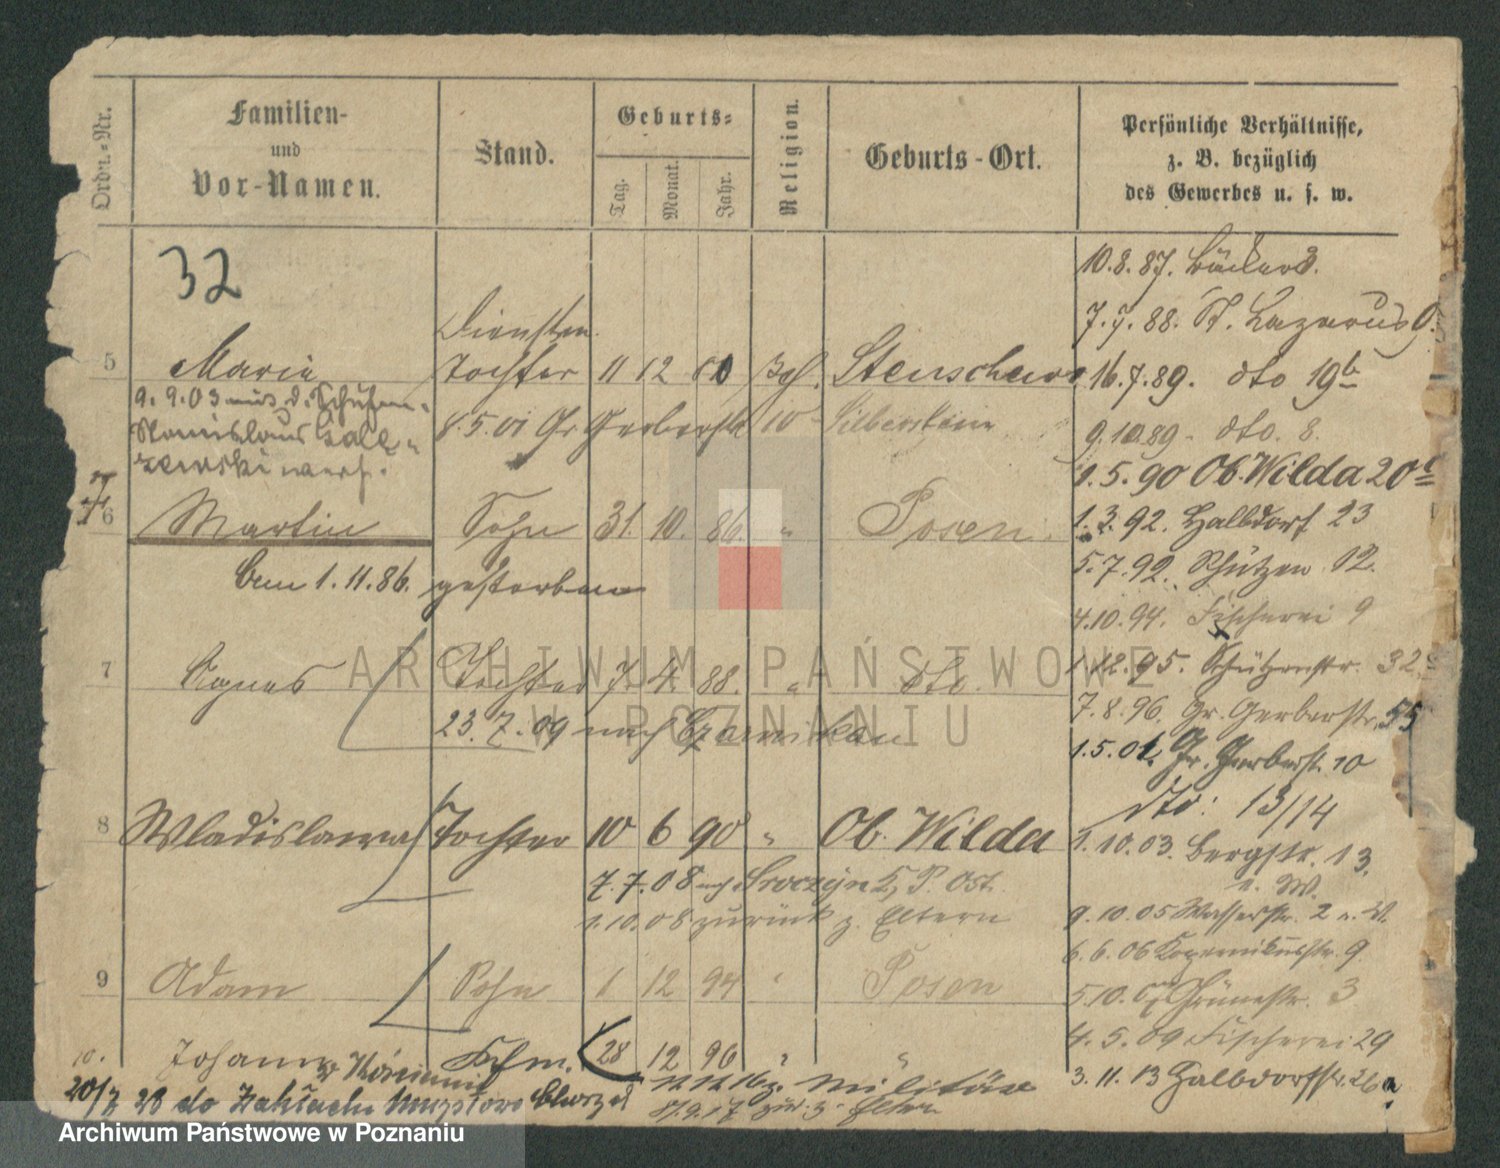 Ordn.-Nr.
Familien-
und
Vor-Namen.
Stand.
Geburts-
Tag.
Monat.
Jahr.
Religion.
Geburts-Ort.
Persönliche Verhältnisse,
z. B. bezüglich
des Gewerbes u. s. w.
32
10.8.87. Bäcker 3.
7.7.88. St. Lazarus
Dienstm.
5 Maria Tochter 11 12 Stenschewo
16.7.89. dto 19b
9.9.03 mit d. Schuhm.
Stanislaus
zewski verh.
8.5.01 Gr Gerberstr 10 Silberstein
9.10.89. dto. 8.
1.5.90 Ob. Wilda 20
6 Martin Sohn 31. 10. 86. " Posen.
1.3.92. Halbdorf 23
am 1.11.86. gestorben
5.7.92. Schützen 12.
4.10.94. Fischerei 9
7 Agnes Tochter 7. 4. 88. " dto.
1.12.95. Schützenstr. 32
23.7.09 nach Czarnikau
7.8.96. Gr. Gerberstr. 55
1.5.01. Gr. Gerberstr. 10
dto: 13/14
8 Wladislawa Tochter 10 6 90 " Ob. Wilda
1.10.03. Bergstr. 13.
7.7.08 nach Sroczyn P. Ost.
1.10.08 zurück z. Eltern
9.10.05 Wasserstr. 2
6.6.06 Kopernikusstr. 9
9 Adam Sohn 1 12 94 " Posen
5.10. Grünestr. 3
4.5.09 Fischerei 29
10. Johann Sohn 28 12 96 " "
3.11.13 Halbdorfstr. 26a
12.12.16 z. Militär
20/7 23 do Zakładu
zur. z. Eltern
ARCHIWUM PAŃSTWOWE
W POZNANIU
Archiwum Państwowe w Poznaniu